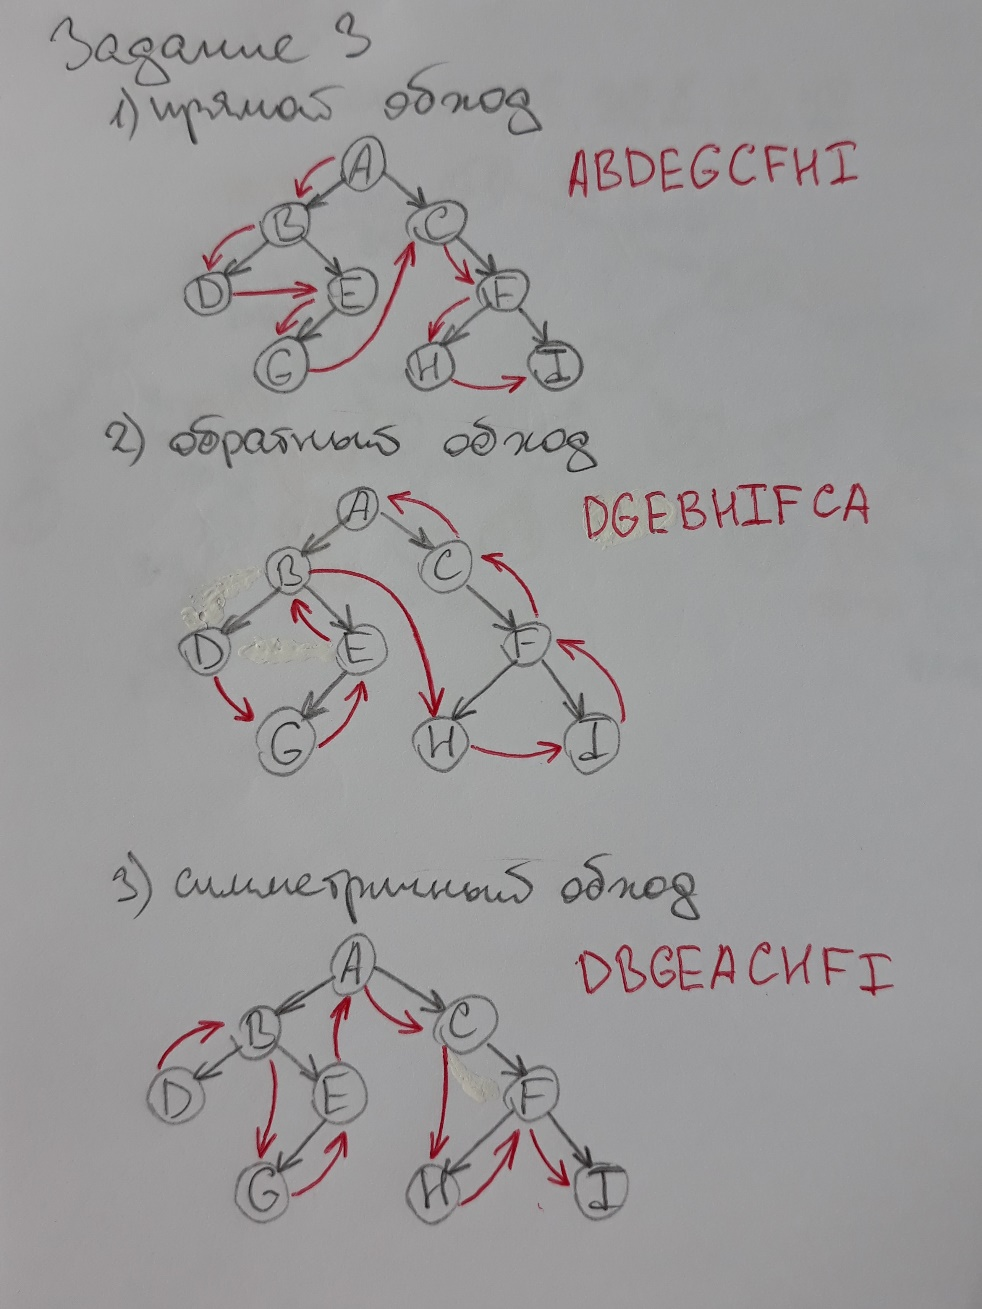 Задание 3
1) прямой обход
ABDEGCFHI
A
B C
D E F
G H I
2) обратный обход
DGEBHIFCA
A
B C
D E F
G H I
3) симметричный обход
DBGEACHFI
A
B C
D E F
G H I